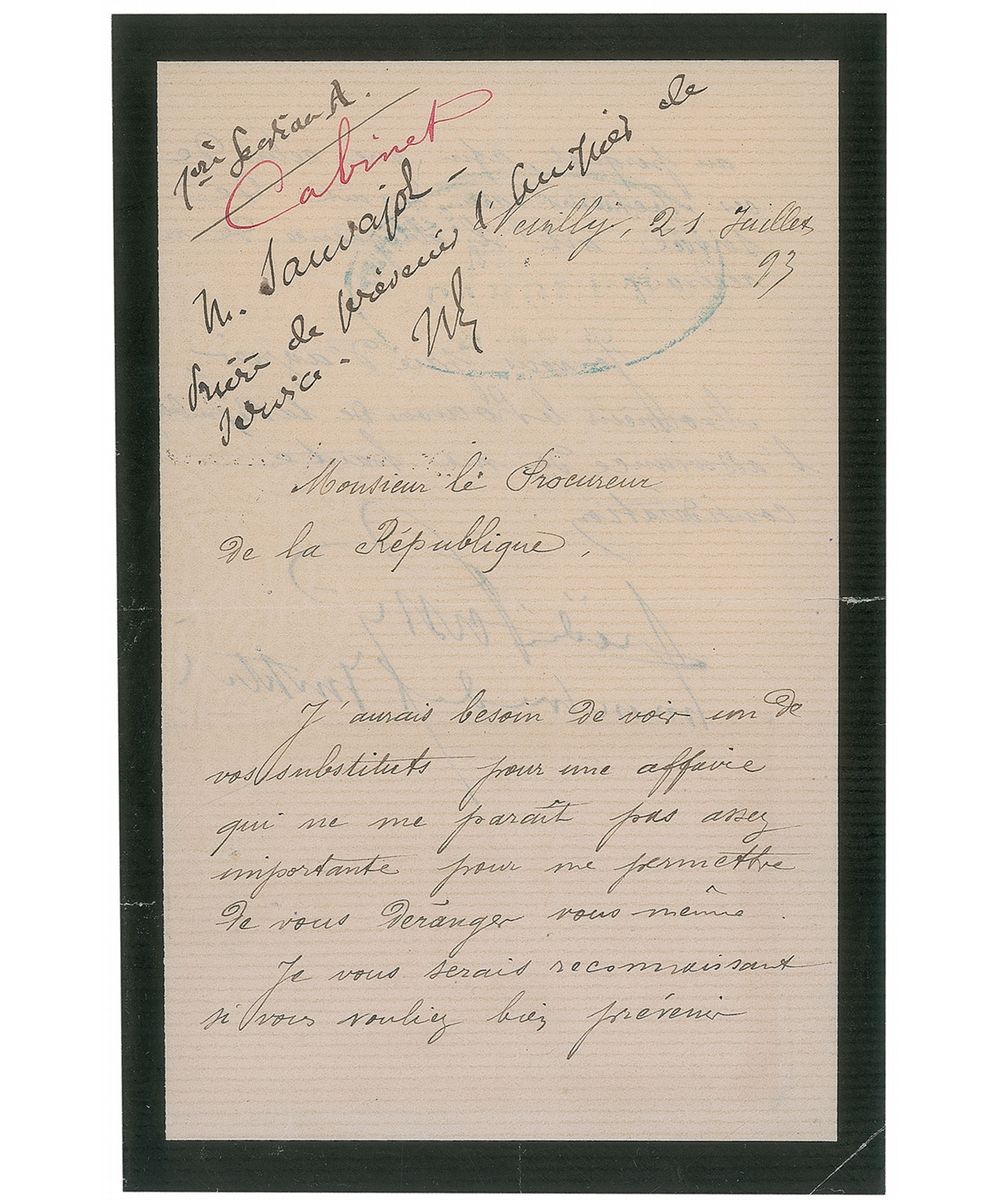 Cabinet
M. Sauvajol -
Prière de prévenir l'huissier de
service -
Neuilly, 21 Juillet
93
Monsieur le Procureur
de la République,
J'aurais besoin de voir un de
vos substituts pour une affaire
qui ne me paraît pas assez
importante pour me permettre
de vous déranger vous même.
Je vous serais reconnaissant
si vous vouliez bien prévenir